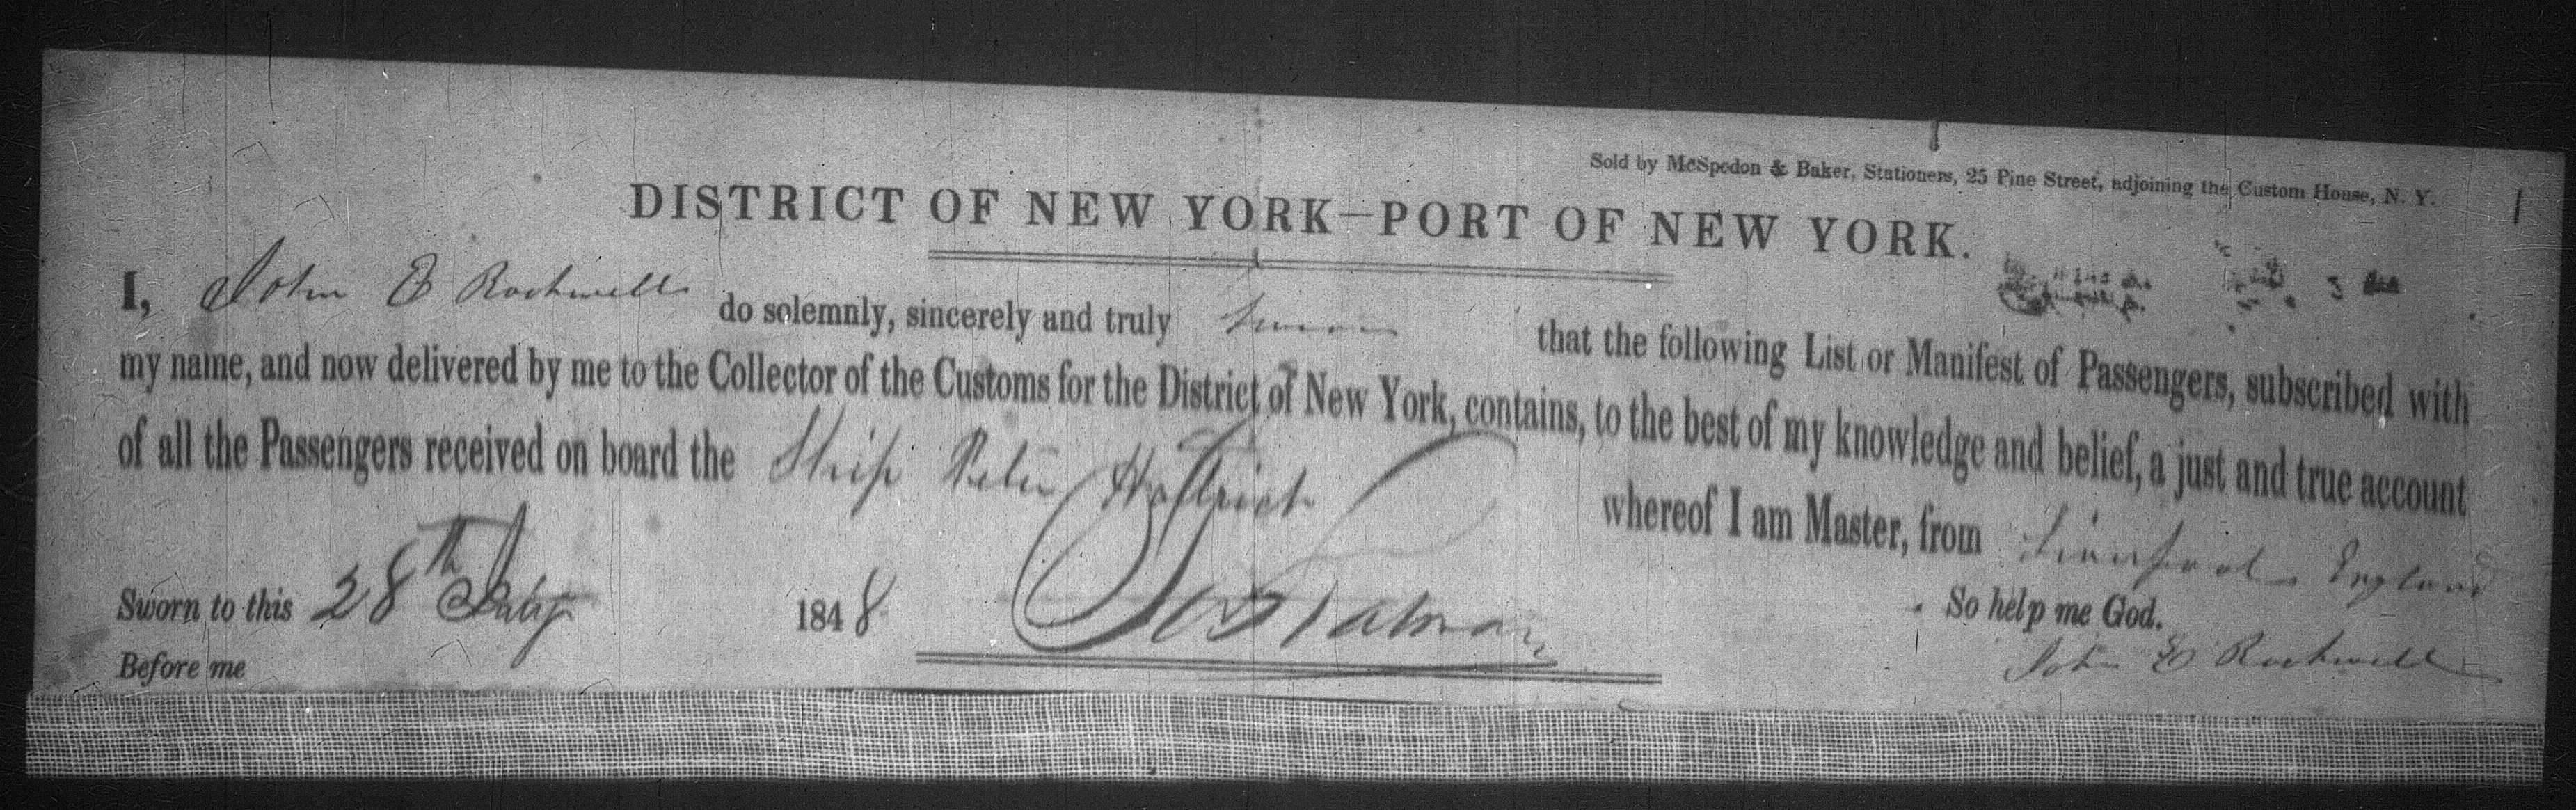 Sold by McSpedon & Baker, Stationers, 25 Pine Street, adjoining the Custom House, N. Y.
DISTRICT OF NEW YORK—PORT OF NEW YORK.
I, John E Rockwell do solemnly, sincerely and truly swear that the following List or Manifest of Passengers, subscribed with
my name, and now delivered by me to the Collector of the Customs for the District of New York, contains, to the best of my knowledge and belief, a just and true account
of all the Passengers received on board the Ship Peter Hattrick whereof I am Master, from Liverpool England
So help me God.
Sworn to this 28th July 1848
John E Rockwell
Before me